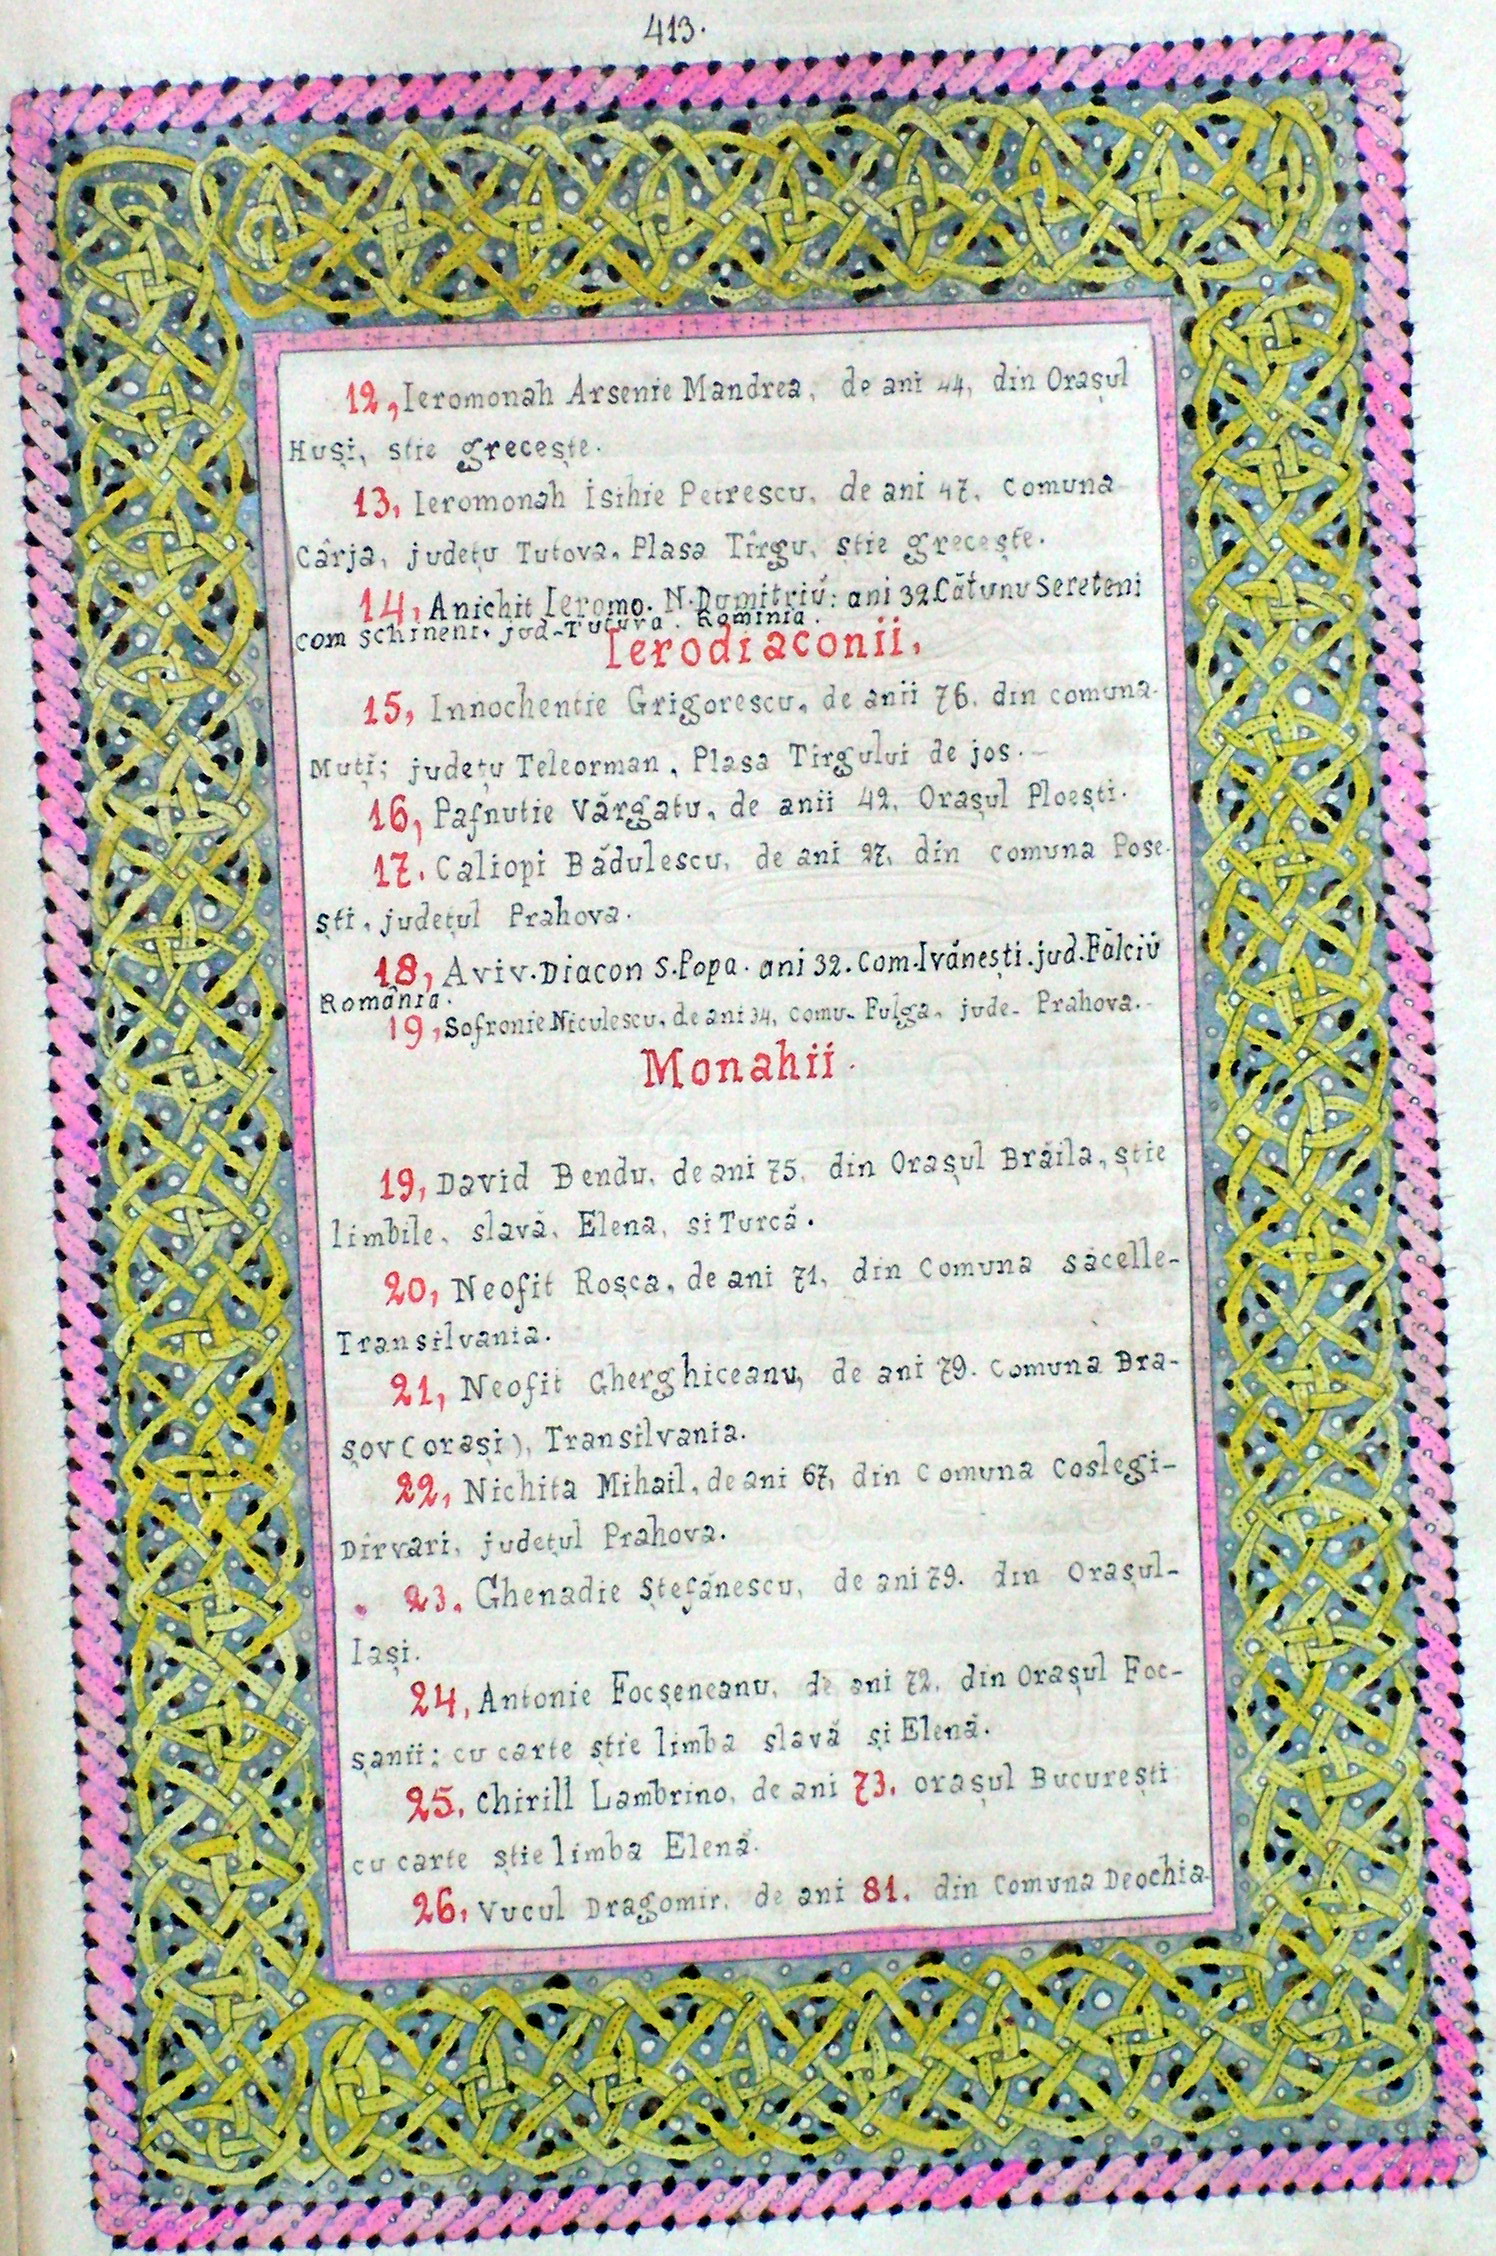 413.
12, Ieromonah Arsenie Mandrea, de ani 44, din Orașul
Huși, stie grecește.
13, Ieromonah Isihie Petrescu, de ani 47, comuna
Cârja, județu Tutova, Plasa Tîrgu, știe grecește.
14, Anichit Ieromo. N. Dumitriŭ: ani 32 Cătunu Sereteni
com Schineni, jud-Tutuva. Rominia.
Ierodiaconii,
15, Innochentie Grigorescu, de anii 76, din comuna
Muți; județu Teleorman, Plasa Tîrgului de jos.
16, Pafnutie Vărgatu, de anii 42, Orașul Ploești.
17. Caliopi Bădulescu, de ani 27, din comuna Pose-
ști, județul Prahova.
18, Aviv. Diacon S. Popa. ani 32. Com. Ivănești. jud. Fălciŭ
România.
19, Sofronie Niculescu, de ani 34, comu- Fulga, jude- Prahova.
Monahii.
19, David Bendu, de ani 75, din Orașul Brăila, știe
limbile, slavă, Elena, si Turcă.
20, Neofit Roșca, de ani 71, din Comuna Săcelle-
Transilvania.
21, Neofit Gherghiceanu, de ani 79. Comuna Bra-
șov (orași), Transilvania.
22, Nichita Mihail, de ani 67, din Comuna Coslegi-
Dîrvari, județul Prahova.
23. Ghenadie Ștefănescu, de ani 79. din Orașul-
Iași.
24, Antonie Focșeneanu, de ani 72, din Orașul Foc-
șanii; cu carte știe limba slavă și Elenă.
25, Chirill Lambrino, de ani 73, orașul București
cu carte știe limba Elenă.
26, Vucul Dragomir, de ani 81, din Comuna Deochia-